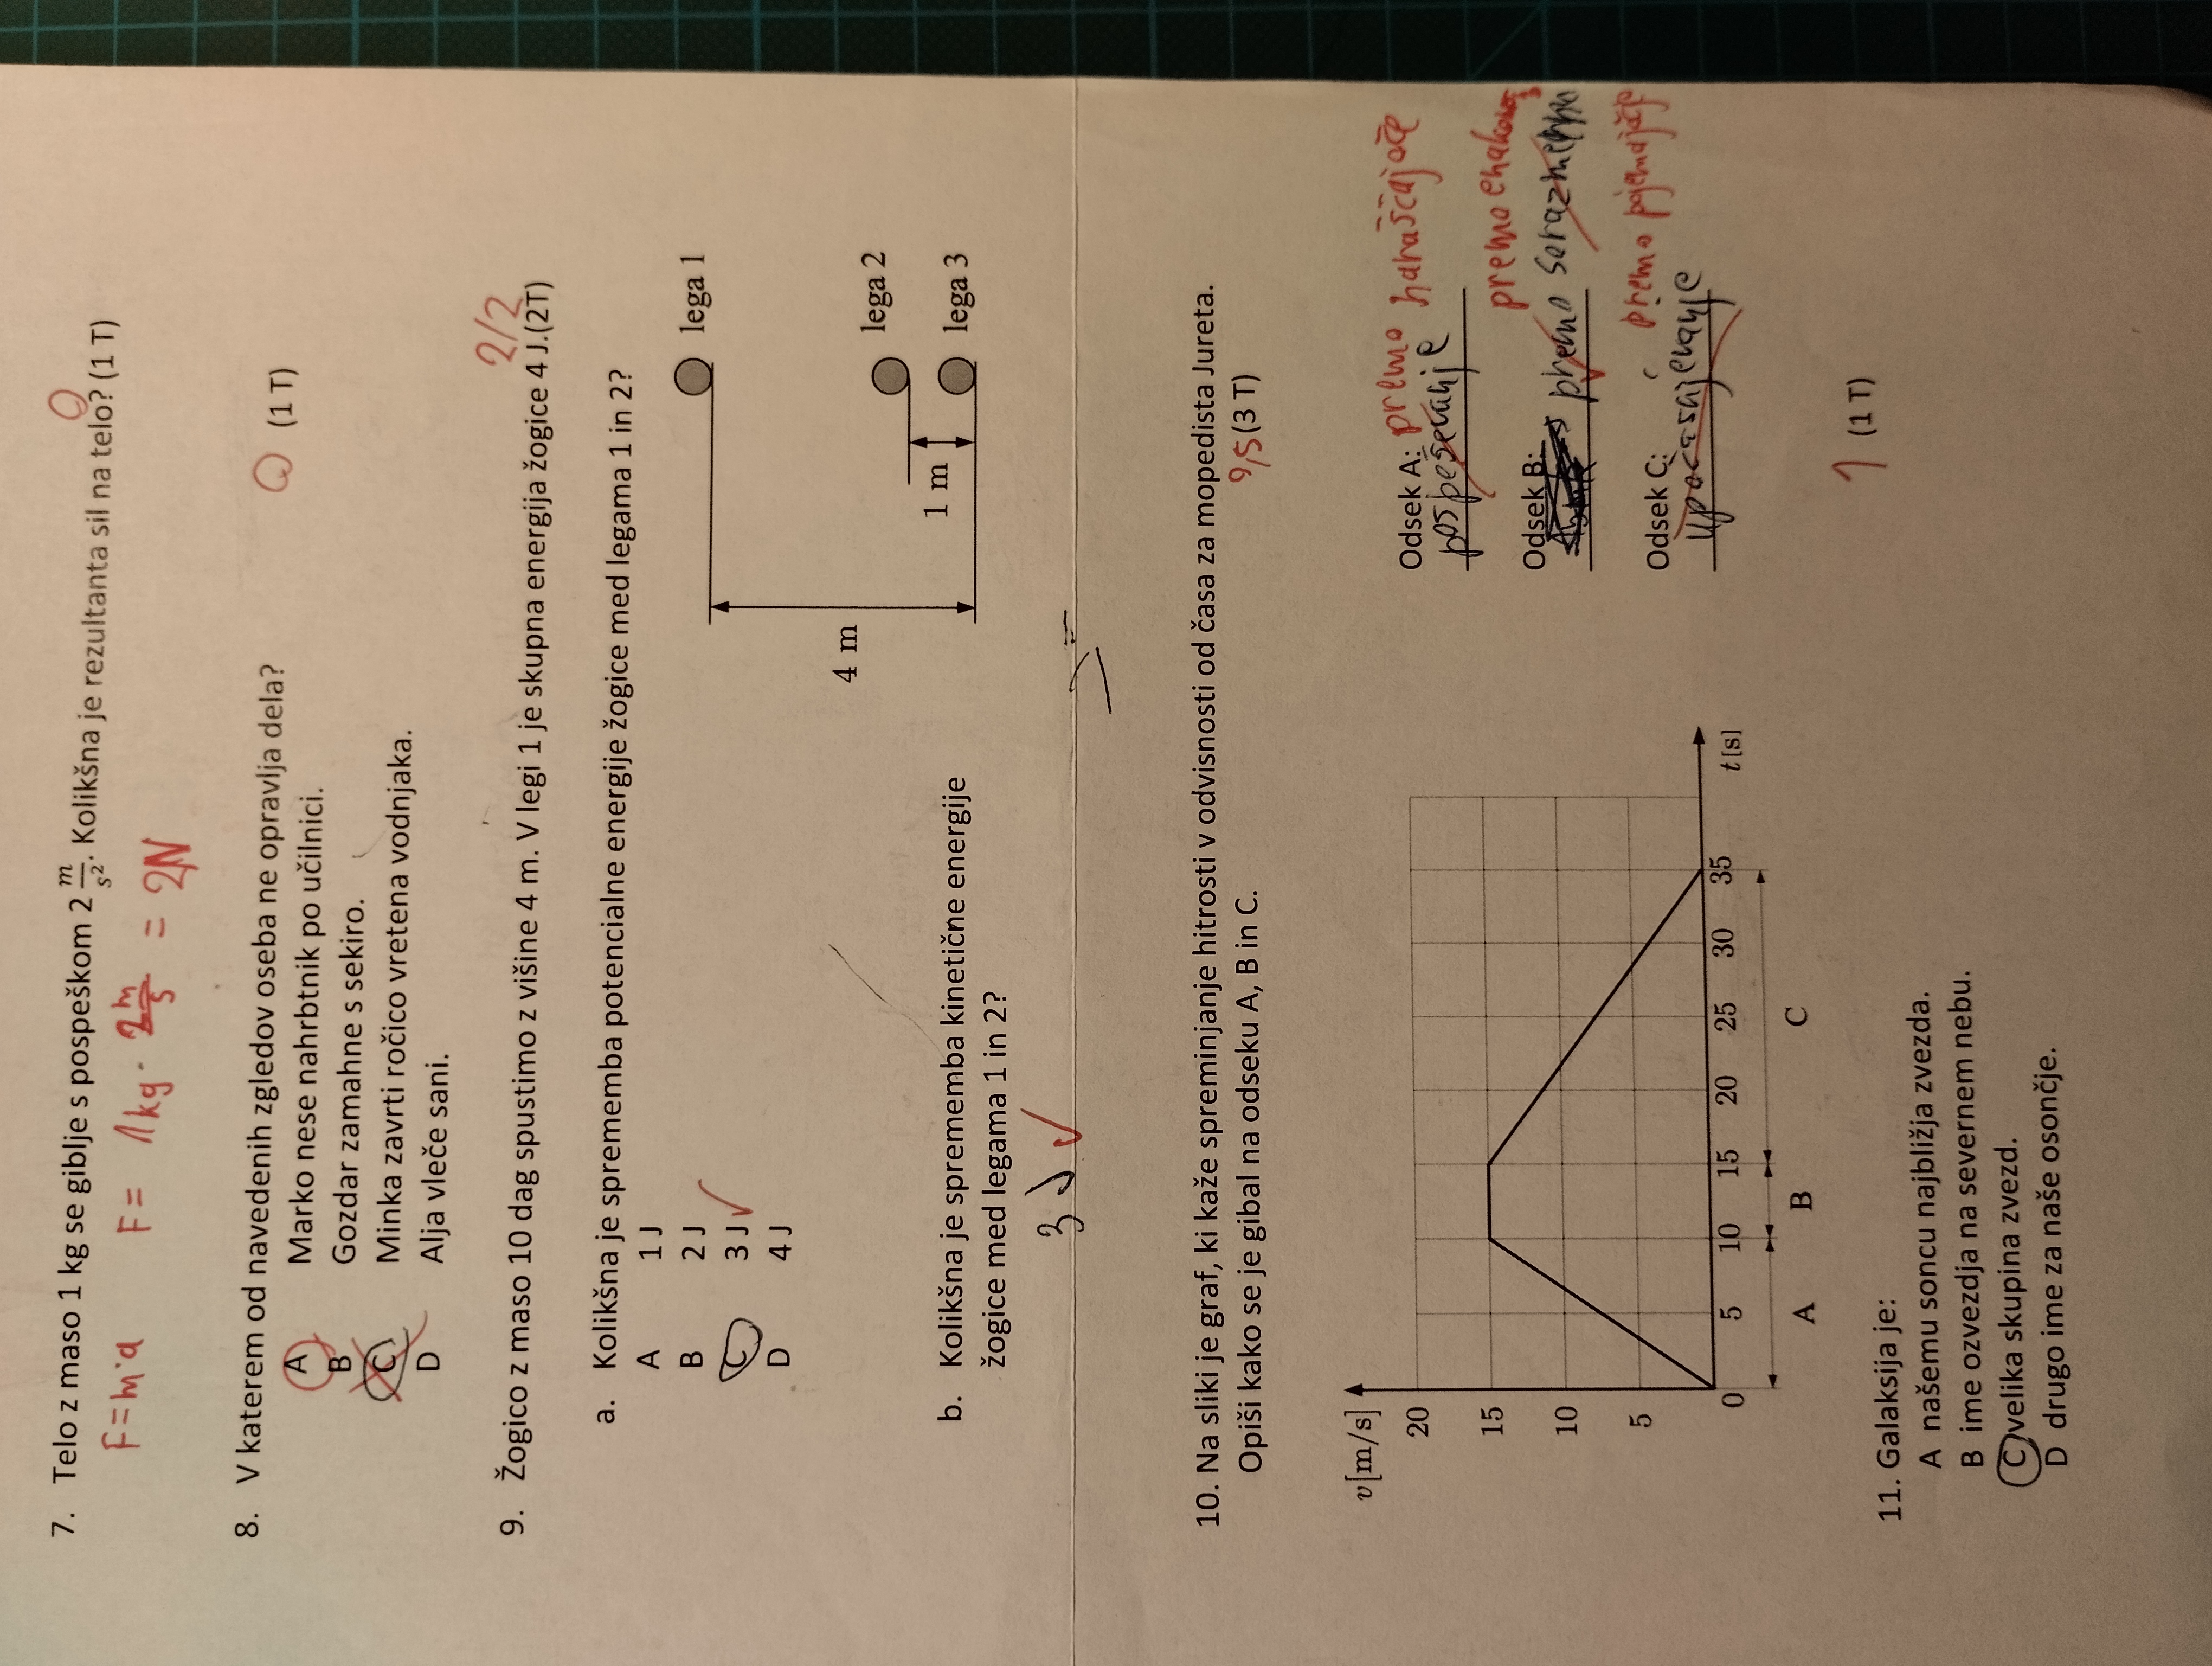 7. Telo z maso 1 kg se giblje s pospeškom 2 m/s². Kolikšna je rezultanta sil na telo? (1 T)
0
F=m·a F= 1kg · 2 m/s = 2N
8. V katerem od navedenih zgledov oseba ne opravlja dela? 0 (1 T)
A Marko nese nahrbtnik po učilnici.
B Gozdar zamahne s sekiro.
C Minka zavrti ročico vretena vodnjaka.
D Alja vleče sani.
2/2
9. Žogico z maso 10 dag spustimo z višine 4 m. V legi 1 je skupna energija žogice 4 J.(2T)
a. Kolikšna je sprememba potencialne energije žogice med legama 1 in 2?
A 1 J
B 2 J
C 3 J
D 4 J
lega 1
4 m
lega 2
1 m
lega 3
b. Kolikšna je sprememba kinetične energije
žogice med legama 1 in 2?
3 J
10. Na sliki je graf, ki kaže spreminjanje hitrosti v odvisnosti od časa za mopedista Jureta.
Opiši kako se je gibal na odseku A, B in C. 0,5 (3 T)
v[m/s]
20
15
10
5
0 5 10 15 20 25 30 35 t[s]
A B C
Odsek A: premo naraščajoče
pospeševanje
premo
Odsek B:
premo sorazmerno
premo pojemajoče
Odsek C:
upočasnjevanje
1 (1 T)
11. Galaksija je:
A našemu soncu najbližja zvezda.
B ime ozvezdja na severnem nebu.
C velika skupina zvezd.
D drugo ime za naše osončje.